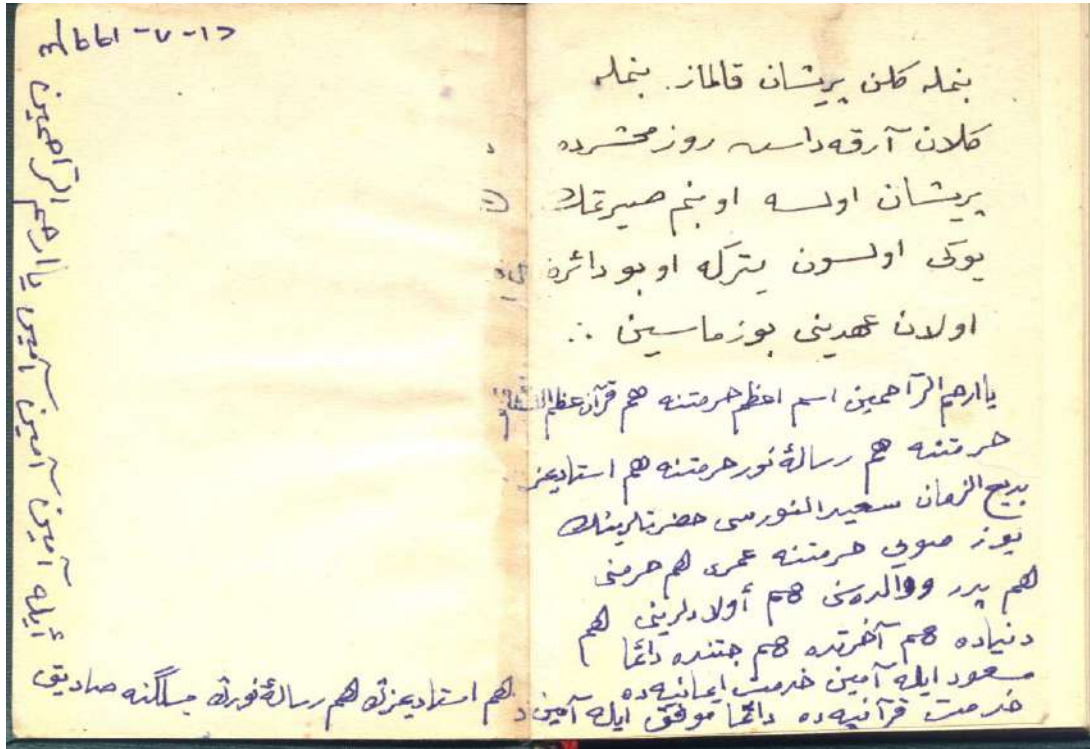 بنمله کلن پریشان قالماز. بنمله
کلان آرقه‌داسم روز محشرده
پریشان اولسه او بنم صیرتمڭ
یوکی اولسون یترکه او بو دائره‌یه
اولان عهدینی بوزماسین ∴
یا ارحم الرّاحمین اسم اعظم حرمتنه هم قرآن عظیم الشان
حرمتنه هم رسالۀ نور حرمتنه هم استادیمز
بدیع الزمان سعید النورسی حضرتلرینك
یوز صویی حرمتنه عمری هم حرمنی
هم پدر و والده‌سنی هم أولادلرینی هم
دنیاده هم آخرتده هم جنتده دائما
مسعود ایله آمین خدمت ایمانیه‌ده
خدمت قرآنیه‌ده دائما موفق ایله آمین
هم استادیمزڭ هم رسالۀ نورڭ مسلگنه صادیق
أیله آمین آمین آمین یا ارحم الرّاحمین